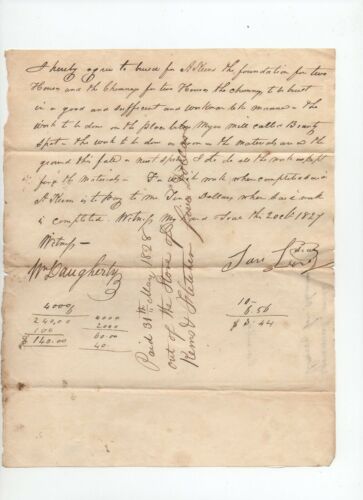 I hereby agree to build for A Kerns the foundation for two
Houses and the Chimneys for two Houses the chimney to be built
in a good and sufficient and workman like manner - the
work to be done on the place below Myers mill called Beauty
Spot - the work to be done as soon as the materials are on the
ground this fall or next spring I to do all the work except
find the materials - For which work when completed said
A Kerns is to pay to me Ten Dollars when said work
is completed. Witness my hand June the 20th 1827
Witness -
Wm Daugherty
his
Paid 31th May 1828
out of the Store of
Kerns & Fletcher
400
240,00 4000
1 00 2000
$ 140.00 60.00
40.
10-
6.56
$ 3.44